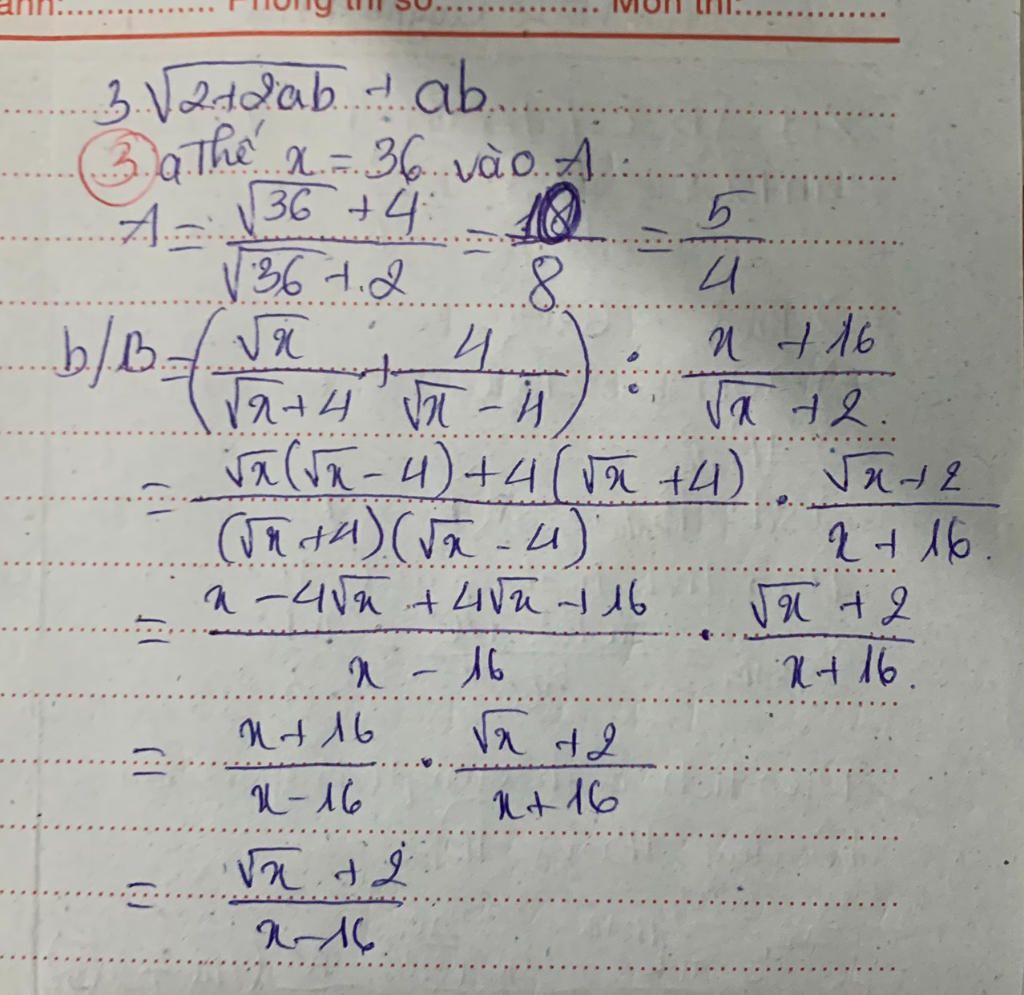 anh:............... Phòng thi số:............... Môn thi:...............
3 √(2+2ab) + ab
③ a Thế x = 36 vào A :
A = (√36 + 4)/(√36 + 2) = 10/8 = 5/4
b/ B = (√x/(√x+4) + 4/(√x - 4)) : (x + 16)/(√x + 2).
= (√x(√x - 4) + 4(√x + 4))/((√x + 4)(√x - 4)) . (√x + 2)/(x + 16).
= (x - 4√x + 4√x + 16)/(x - 16) . (√x + 2)/(x + 16).
= (x + 16)/(x - 16) . (√x + 2)/(x + 16)
= (√x + 2)/(x - 16)